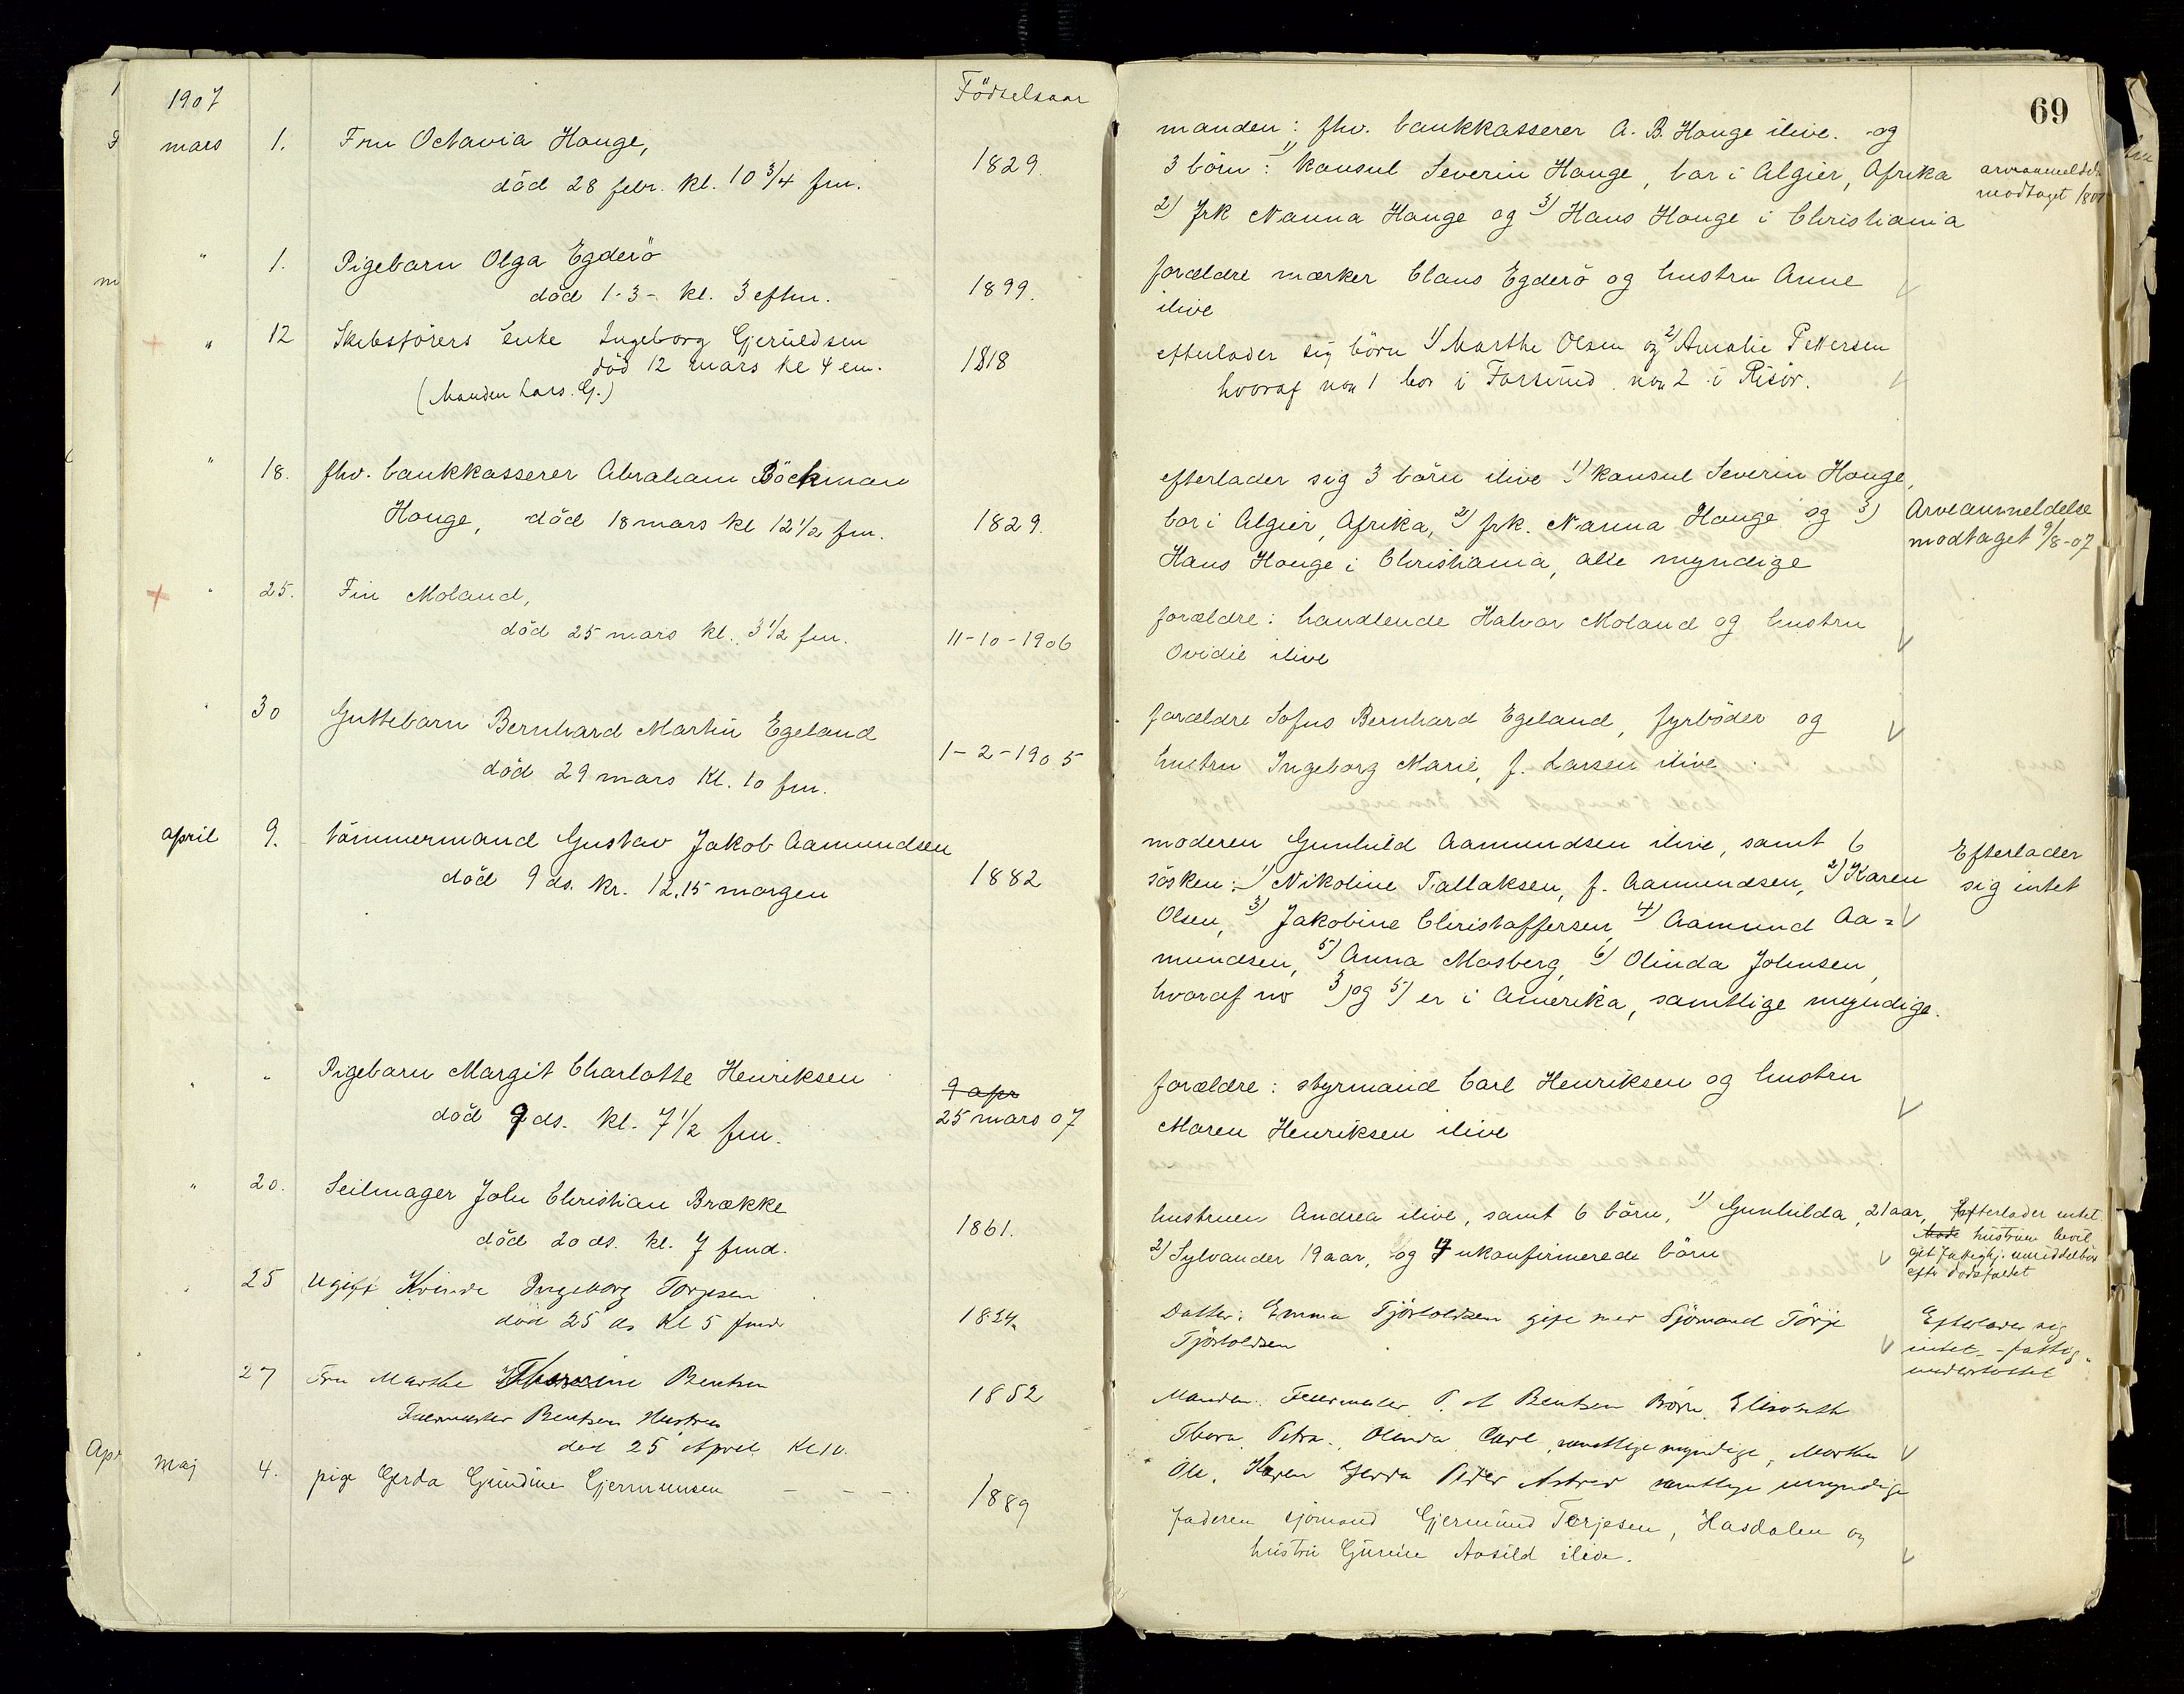 69
1907
Födselsaar
mars 1. Fru Octavia Houge,
död 28 febr. kl. 10 3/4 fm.
1829.
manden: fhv. bankkasserer A. B. Houge ilive. og
3 börn: 1) konsul Severin Houge, bor i Algier, Afrika
2) frk Nanna Houge og 3) Hans Houge i Christiania
arveanmeldelse
modtaget
" 1. Pigebarn Olga Egderö
död 1-3- kl. 3 eftm.
1899.
forældre mærker Claus Egderö og hustru Anne
ilive
" 12 Skibsförers Enke Ingeborg Gjeruldsen
död 12 mars kl 4 em.
(Manden Lars. G.)
1818
efterlader sig börn 1) Marthe Olsen og 2) Amalie Pettersen
hvoraf no 1 bor i Farsund no 2 i Risör.
" 18. fhv. bankkasserer Abraham Böckman
Houge, död 18 mars kl 12 1/2 fm.
1829.
efterlader sig 3 börn ilive 1) konsul Severin Houge,
bor i Algier, Afrika, 2) frk. Nanna Houge og 3)
Hans Houge i Christiania, alle myndige
Arveanmeldelse
modtaget 9/8-07
" 25. Fin Moland,
död 25 mars kl. 3 1/2 fm.
11-10-1906
forældre: handlende Halvor Moland og hustru
Ovidie ilive
" 30 Guttebarn Bernhard Martin Egeland
död 29 mars kl. 10 fm.
1-2-1905
forældre Sofus Bernhard Egeland, fyrböder og
hustru Ingeborg Marie, f. Larsen ilive
april 9. tömmermand Gustav Jakob Aamundsen
död 9 ds. kr. 12.15 morgen
1882
moderen Gunhild Aamundsen ilive, samt 6
sösken: 1) Nikoline Tallaksen, f. Aamundsen, 2) Karen
Olsen, 3) Jakobine Christoffersen, 4) Aamund Aa=
mundsen, 5) Anna Mosberg, 6) Olinda Johnsen,
hvoraf no 3) og 5) er i Amerika, samtlige myndige.
Efterlader
sig intet
" " Pigebarn Margit Charlotte Henriksen
död 9 ds. kl. 7 1/2 fm.
9 apr
25 mars 07
forældre: styrmand Carl Henriksen og hustru
Maren Henriksen ilive
" 20. Seilmager John Christian Brække
död 20 ds. kl. 7 fmd.
1861.
hustruen Andrea ilive, samt 6 börn, 1) Gunhilda, 21 aar,
2) Sylvander 19 aar, og 4 ukonfirmerede börn
Efterlader intet.
hustruen bevil
get fattighj. umiddelbar
efter dödsfaldet
" 25 Ugift Kvinde Ingeborg Torjesen
död 25 ds Kl 5 fmd
1824
Datter: Emma Tjöstolvsen gift med Sjömand Törje
Tjöstolvsen
Efterlader sig
intet - fattig
understöttet
27 Fru Marthe Bentsen
Bentsen Hustru
död 25 April Kl 10.
1852
Manden: P. A Bentsen Börn Elisabeth
Thora. Petra. Olinda Carl, samtlige myndige, Marthe
Ole, Karen Gerda Peder Astrid samtlige umyndige
Maj 4. pige Gerda Gundine Gjermunsen - - -
1889
Faderen sjömand Gjermund Terjesen, Hasdalen og
hustru Gurine Aasild ilive.